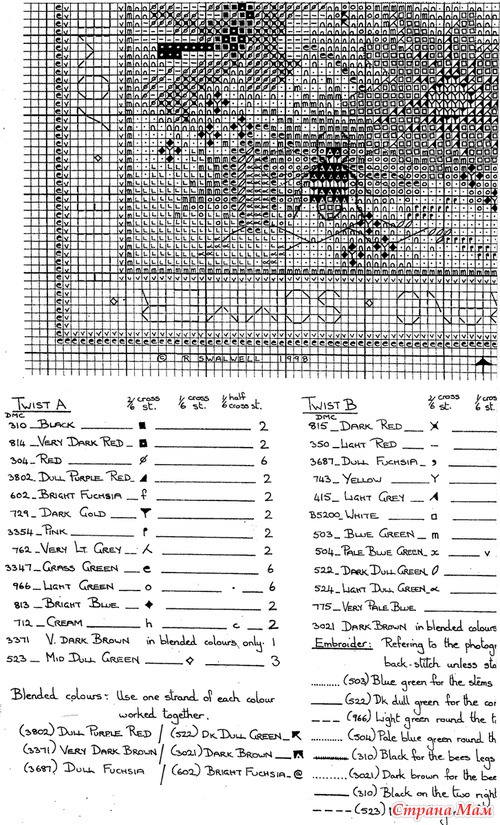 © R SWALWELL 1998
TWIST A 2/6 cross st. 1/6 cross st. 1/2 half 6 cross st.
DMC
310_ BLACK ■ 2
814_ VERY DARK RED_ 2
304_ RED ø 6
3802_ DULL PURPLE RED_ 2
602_ BRIGHT FUCHSIA_ f 2
729_ DARK GOLD 2
3354_ PINK 2
762_ VERY LT. GREY_ 2
3347_ GRASS GREEN e 6
966_ LIGHT GREEN o . 6
813_ BRIGHT BLUE_ ◆ 2
712_ CREAM h c 2
3371 V. DARK BROWN in blended colours, only. 1
523_ MID DULL GREEN ◇ 3
Blended colours: Use one strand of each colour
worked together.
(3802) DULL PURPLE RED / (522) DK DULL GREEN_
(3371) VERY DARK BROWN / (3021) DARK BROWN_
(3687) DULL FUCHSIA / (602) BRIGHT FUCHSIA_ @
TWIST B 2/6 cross st. 1/6 cross st.
DMC
815_ DARK RED
350_ LIGHT RED –
3687_ DULL FUCHSIA_ ,
743_ YELLOW Y
415_ LIGHT GREY
B5200_ WHITE □
503_ BLUE GREEN_ m
504_ PALE BLUE GREEN_ x v
522_ DARK DULL GREEN 0
524_ LIGHT DULL GREEN_ ∝
775_ VERY PALE BLUE
3021 DARK BROWN in blended colours
Embroider: Refering to the photog
back-stitch unless sta
(503) Blue green for the stems
(522) Dk dull green for the cor
(966) Light green round the t
(504) Pale blue green round th
(310) Black for the bees legs
(3021) Dark brown for the bee
(310) Black on the two right
(523)
Страна Мам